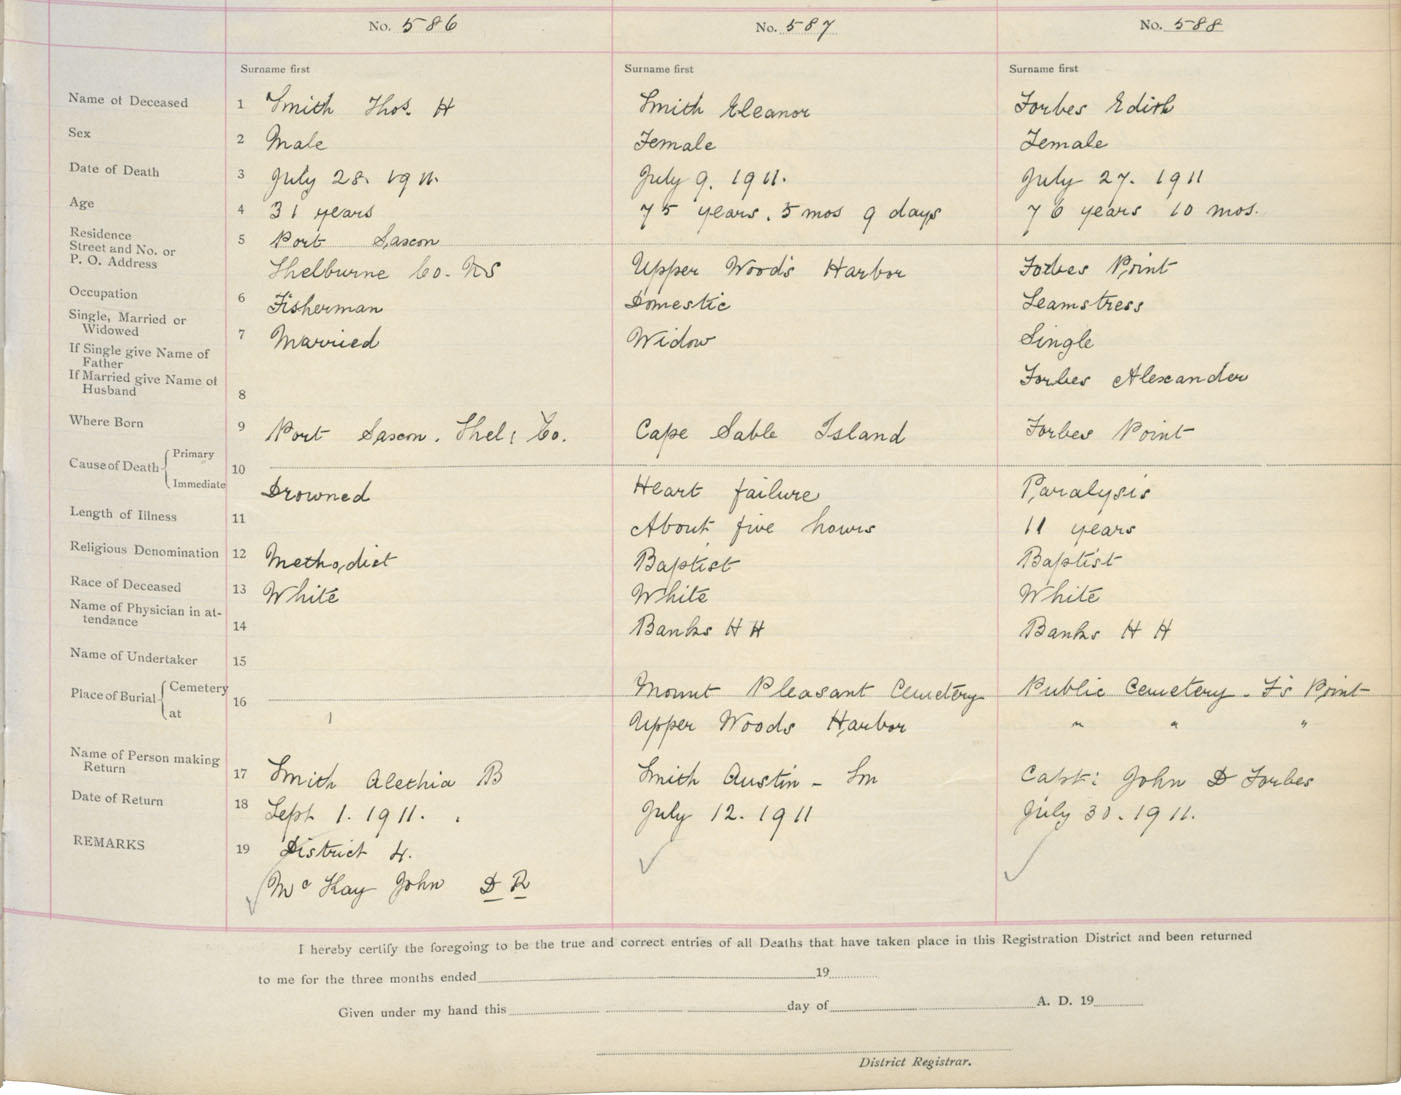 No. 586 No. 587 No. 588
Surname first Surname first Surname first
Name of Deceased 1 Smith Thos. H Smith Eleanor Forbes Edith
Sex 2 Male Female Female
Date of Death 3 July 28. 1911. July 9. 1911. July 27. 1911
Age 4 31 years 75 years. 5 mos 9 days 76 years 10 mos.
Residence 5 Port Saxon
Street and No. or
P. O. Address Shelburne Co. NS Upper Wood's Harbor Forbes Point
Occupation 6 Fisherman Domestic Seamstress
Single, Married or
Widowed 7 Married Widow Single
If Single give Name of
Father
If Married give Name of Forbes Alexander
Husband 8
Where Born 9 Port Saxon. Shel: Co. Cape Sable Island Forbes Point
Cause of Death Primary
Immediate 10 Drowned Heart failure Paralysis
Length of Illness 11 About five hours 11 years
Religious Denomination 12 Methodist Baptist Baptist
Race of Deceased 13 White White White
Name of Physician in at-
tendance 14 Banks H H Banks H H
Name of Undertaker 15
Place of Burial Cemetery 16 Mount Pleasant Cemetery Public Cemetery. F's Point
at Upper Woods Harbor " " "
Name of Person making
Return 17 Smith Alethia B Smith Austin - Sm Capt: John D Forbes
Date of Return 18 Sept 1. 1911. July 12. 1911 July 30. 1911.
REMARKS 19 District 4.
Mc Kay John D R
I hereby certify the foregoing to be the true and correct entries of all Deaths that have taken place in this Registration District and been returned
to me for the three months ended 19
Given under my hand this day of A. D. 19
District Registrar.